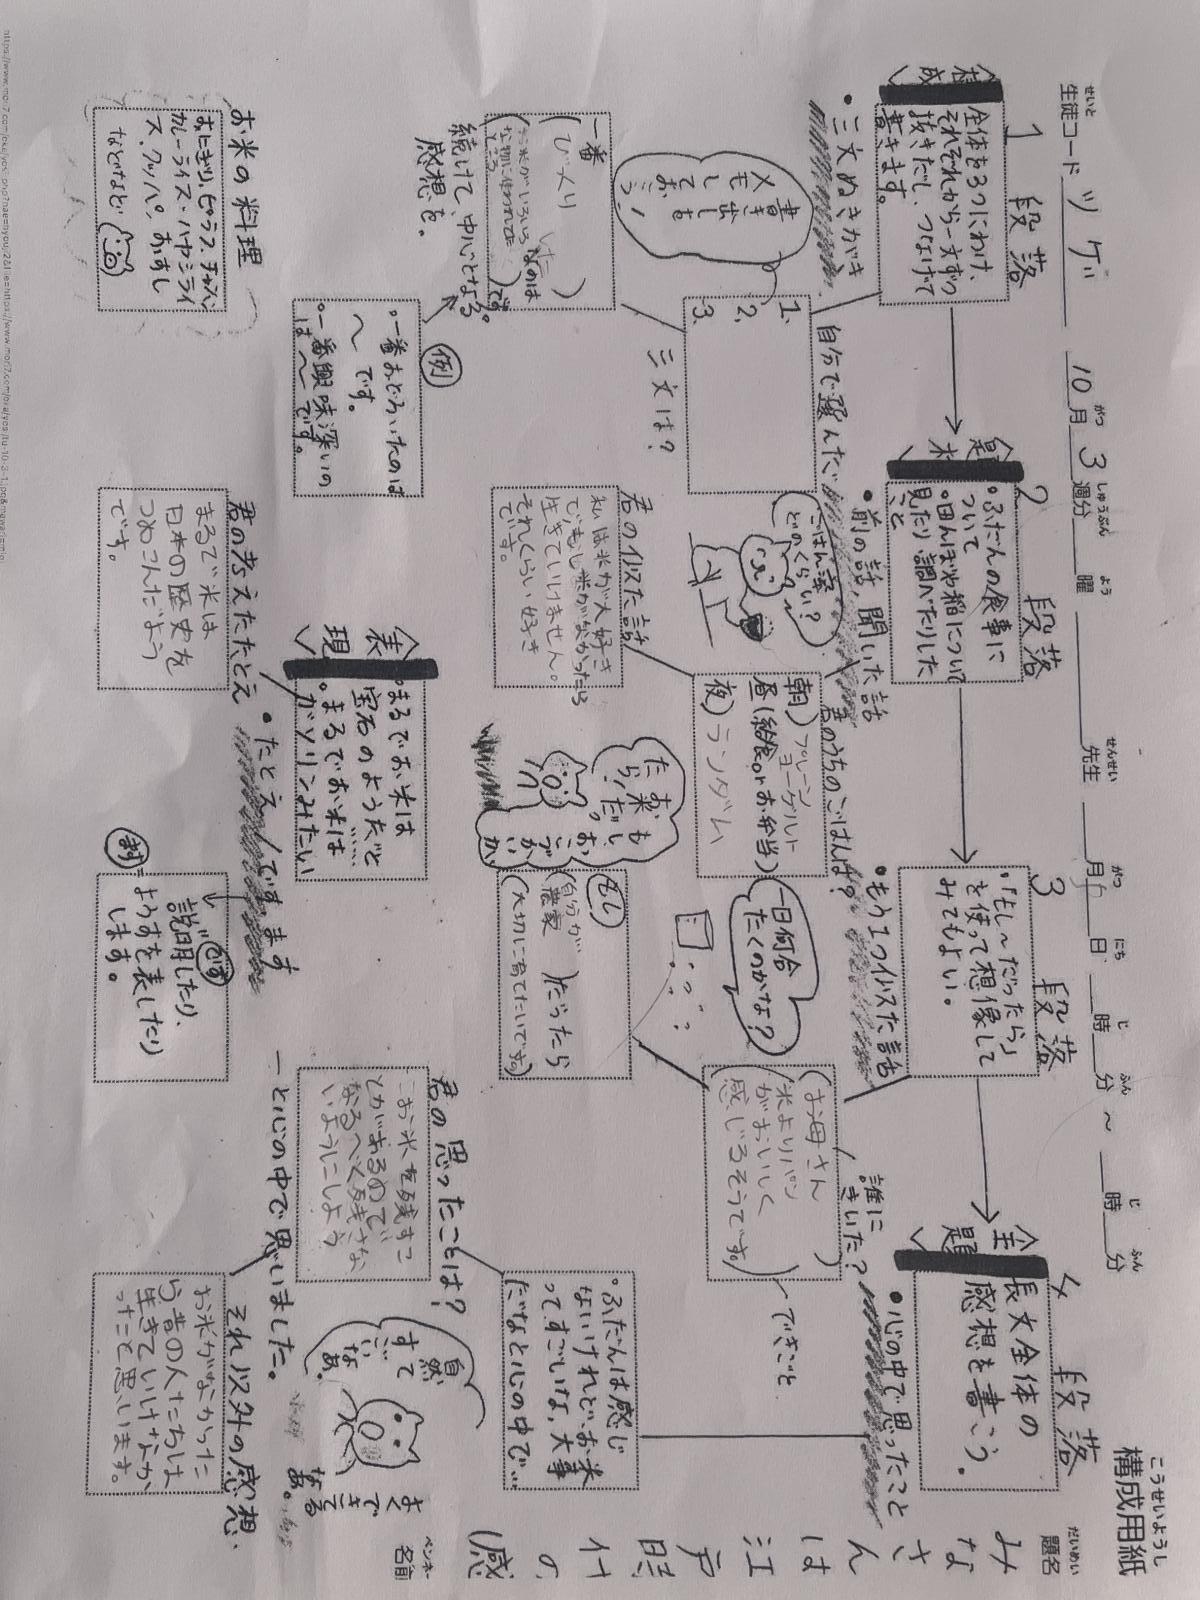 構成用紙
こうせいようし
生徒コード ツゲ 10月3週分 曜 先生 月 日 時 分 ~ 時 分
せいと がつ しゅうぶん よう せんせい がつ にち じ ふん じ ふん
題名
だいめい
みなさんは江戸時
代の(感
ペンネーム
名前
1段落
<構成>
全体を3つにわけ、
それぞれから一文ずつ
抜きだし、つなげて
書きます。
・三文ぬきがき
書き出しも
メモして
おこう!
自分で選んだ
三文は?
1.
2.
3.
一番
(びっくり
したのは
お米がいろいろ
な物に使われてた
ところ
)です。
続けて、中心となる
感想を。
例
・一番おどろいたのは
~です。
・一番興味深いの
は~です。
お米の料理
おにぎり、ピラフ、チャーハン
カレーライス・ハヤシライ
ス、クッパ、おすし
などなど
2段落
<題材>
・ふだんの食事に
ついて
・田んぼや稲について
見たり、調べたりした
こと
・前の話、聞いた話
ごはん茶
どのくらい?
君のうちのごはんは?
朝)プレーン
ヨーグルト
昼(給食orお弁当)
夜)ランダム
君の似た話
私は米が大好き
でもし米がなかったら
生きていけません。
それくらい好き
です。
<表現>
・まるでお米は
宝石のようだと
・まるでお米は
ガソリンみたい
・たとえ/です ます
君の考えたたとえ
まるで米は
日本の歴史を
つめこんだよう
です。
です
ます
=説明したり、
ようすを表したり
します。
3段落
・「もし~だったら」
を使って想像して
みてもよい。
・もう1つ似た話
一日何合
たくのかな?
誰に
きいた?
(お母さん)
米よりパン
がおいしく
感じるそうです。
できごと
お米も
もし
だったら!
おいでおいで
もし
(自分が
農家)だったら
(大切に育てたいです。)
4段落
<主題>
長文全体の
感想を書こう。
・心の中で思ったこと
・ふだんは感じ
ないけれど、お米
ってすごいな、大事
だなと心の中で…
君の思ったことは?
お米を残すこ
とがあるので
なるべく残さな
いようにしよう
ーと心の中で思いました。
自然
すごいなあ。
よくできてるなあ。
それ以外の感想、
お米がなかった
ら昔の人たちは
生きていけなか
ったと思います。